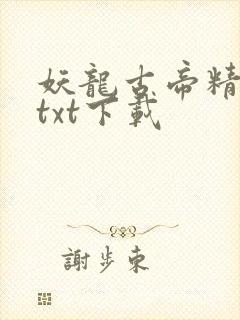 妖龍古帝精
txt下載
謝步東